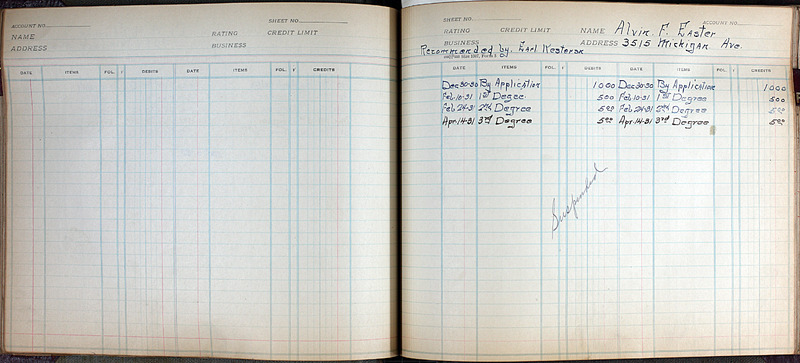 ACCOUNT NO.
SHEET NO.
NAME RATING CREDIT LIMIT
ADDRESS BUSINESS
DATE ITEMS FOL. DEBITS DATE ITEMS FOL. CREDITS
SHEET NO. ACCOUNT NO.
RATING CREDIT LIMIT NAME Alvin F. Easter
BUSINESS ADDRESS 3515 Michigan Ave.
Recommended by. Earl
DATE ITEMS FOL. DEBITS DATE ITEMS FOL. CREDITS
Dec-30-30 By Application 1000 Dec-30-30 By Application 1000
Feb-10-31 1st Degee 500 Feb-10-31 1st Degree 500
Feb 24-31 2nd Degree 500 Feb 24-31 2nd Degree 500
Apr-14-31 3rd Degree 500 Apr-14-31 3rd Degree 500
Suspended